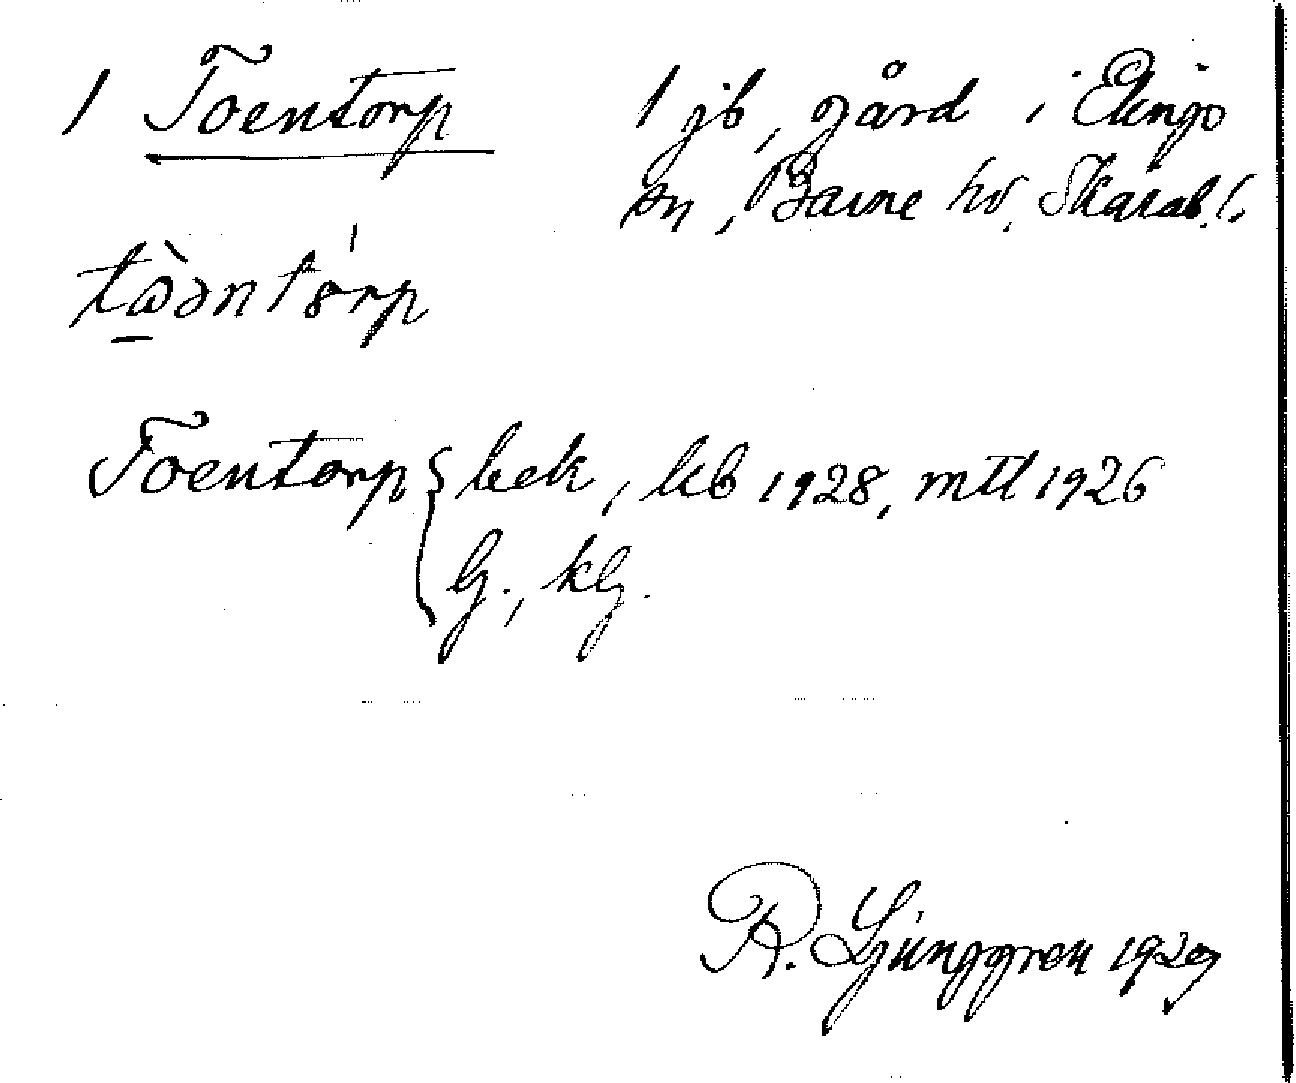 1 Toentorp 1 jb, gård i Elings
sn, Barne hd. Skarab. l.
tꞷ̀əntɵ́rp
Toentorp { bek, kb 1928, mtl 1926
lj., klj.
R. Ljunggren 1929